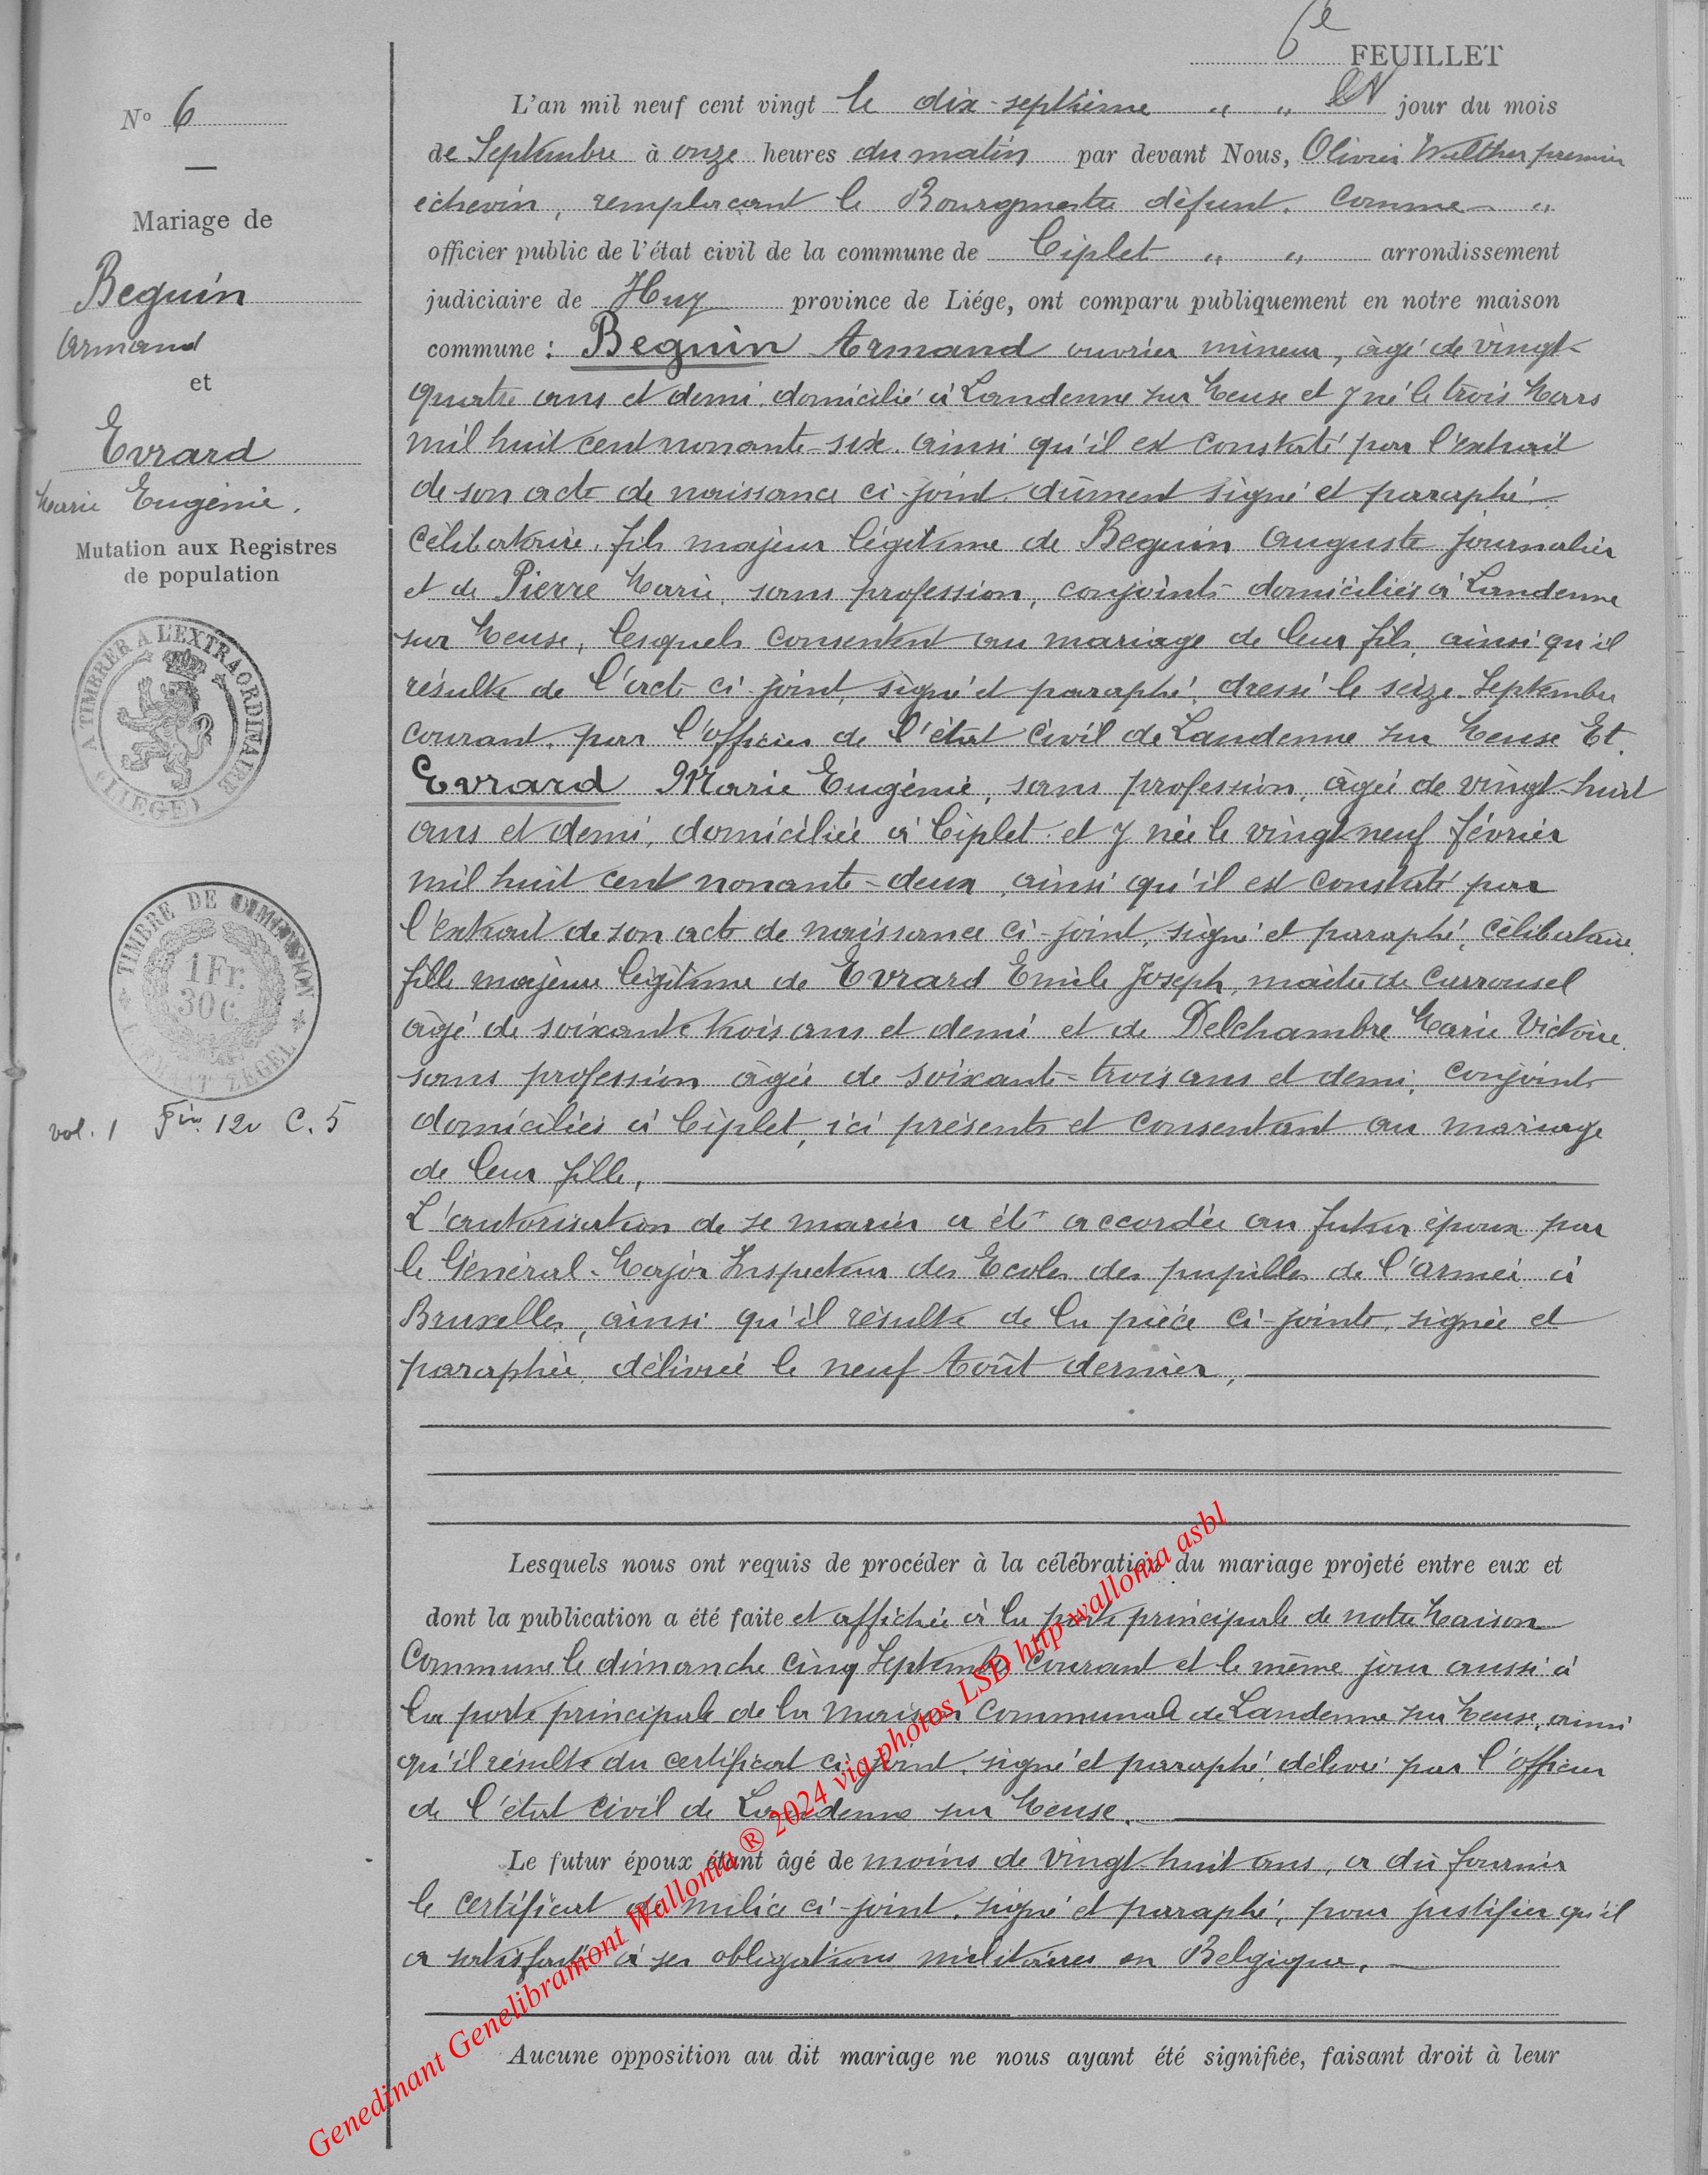 6e FEUILLET
No 6
Mariage de
Beguin
Armand
et
Evrard
Marie Eugénie.
Mutation aux Registres
de population
A TIMBRER A L'EXTRAORDINAIRE
(LIEGE)
TIMBRE DE DIMENSION
1 Fr.
30 C.
ZEGEL
vol. 1 Fio 12v C. 5
L'an mil neuf cent vingt le dix-septième " " jour du mois
de Septembre à onze heures du matin par devant Nous, Olivier Walther premier
échevin, remplaçant le Bourgmestre défunt. comme "
officier public de l'état civil de la commune de Ciplet " " arrondissement
judiciaire de Huy province de Liége, ont comparu publiquement en notre maison
commune : Beguin Armand ouvrier mineur, âgé de vingt-
quatre ans et demi, domicilié à Landenne sur Meuse et y né le trois Mars
mil huit cent nonante-six. ainsi qu'il est constaté par l'extrait
de son acte de naissance ci-joint dûment signé et paraphé.
Célibataire, fils majeur légitime de Beguin Auguste journalier
et de Pierre Marie, sans profession, conjoints domiciliés à Landenne
sur Meuse, lesquels consentent au mariage de leur fils, ainsi qu'il
résulte de l'acte ci-joint, signé et paraphé, dressé le seize Septembre
courant, par l'officier de l'état civil de Landenne sur Meuse Et.
Evrard Marie Eugénie, sans profession, âgée de vingt-huit
ans et demi, domiciliée à Ciplet et y née le vingt neuf février
mil huit cent nonante-deux, ainsi qu'il est constaté par
l'extrait de son acte de naissance ci-joint, signé et paraphé, célibataire,
fille majeure légitime de Evrard Emile Joseph, maître de carrousel
âgé de soixante trois ans et demi et de Delchambre Marie Victoire.
sans profession âgée de soixante-trois ans et demi, conjoints
domiciliés à Ciplet, ici présents et consentant au mariage
de leur fille,
L'autorisation de se marier a été accordée au futur époux par
le Général-Major Inspecteur des Ecoles des pupilles de l'armée à
Bruxelles, ainsi qu'il résulte de la pièce ci-jointe, signée et
paraphée, délivrée le neuf Août dernier,
Lesquels nous ont requis de procéder à la célébration du mariage projeté entre eux et
dont la publication a été faite et affichée à la porte principale de notre Maison
Commune le dimanche cinq Septembre courant et le même jour aussi à
la porte principale de la Maison Communale de Landenne sur Meuse, ainsi
qu'il résulte du certificat ci-joint, signé et paraphé, délivré par l'officier
de l'état civil de Landenne sur Meuse.
Le futur époux étant âgé de moins de vingt-huit ans, a dû fournir
le certificat de milice ci-joint, signé et paraphé, pour justifier qu'il
a satisfait à ses obligations militaires en Belgique.
Aucune opposition au dit mariage ne nous ayant été signifiée, faisant droit à leur
Genedinant Genelibramont Wallonia ® 2024 via photos LSD http wallonia asbl